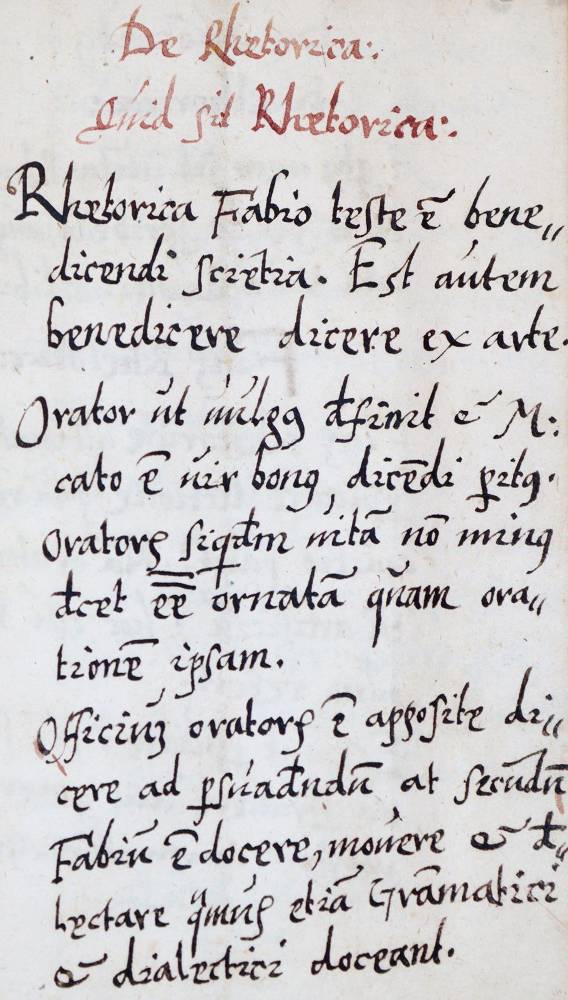 De Rhetorica:.
Quid sit Rhetorica:.
Rhetorica Fabio teste ē bene„
dicendi sciētia. Est autem
benedicere dicere ex arte.
Orator ut uulgꝰ đfinit & M:
cato ē uir bonꝰ, dicēdi ꝑitꝰ.
Oratorꝭ siqđm uitā nō minꝰ
đcet ēē ornatā quam ora„
tionē ipsam.
Officiuꝫ oratorꝭ ē apposite di„
cere ad ꝑsuađndū at secūdū
Fabiū ē docere, mouere & đ„
lectare qͣmuꝭ etiā Grāmatici
& dialectici doceant.